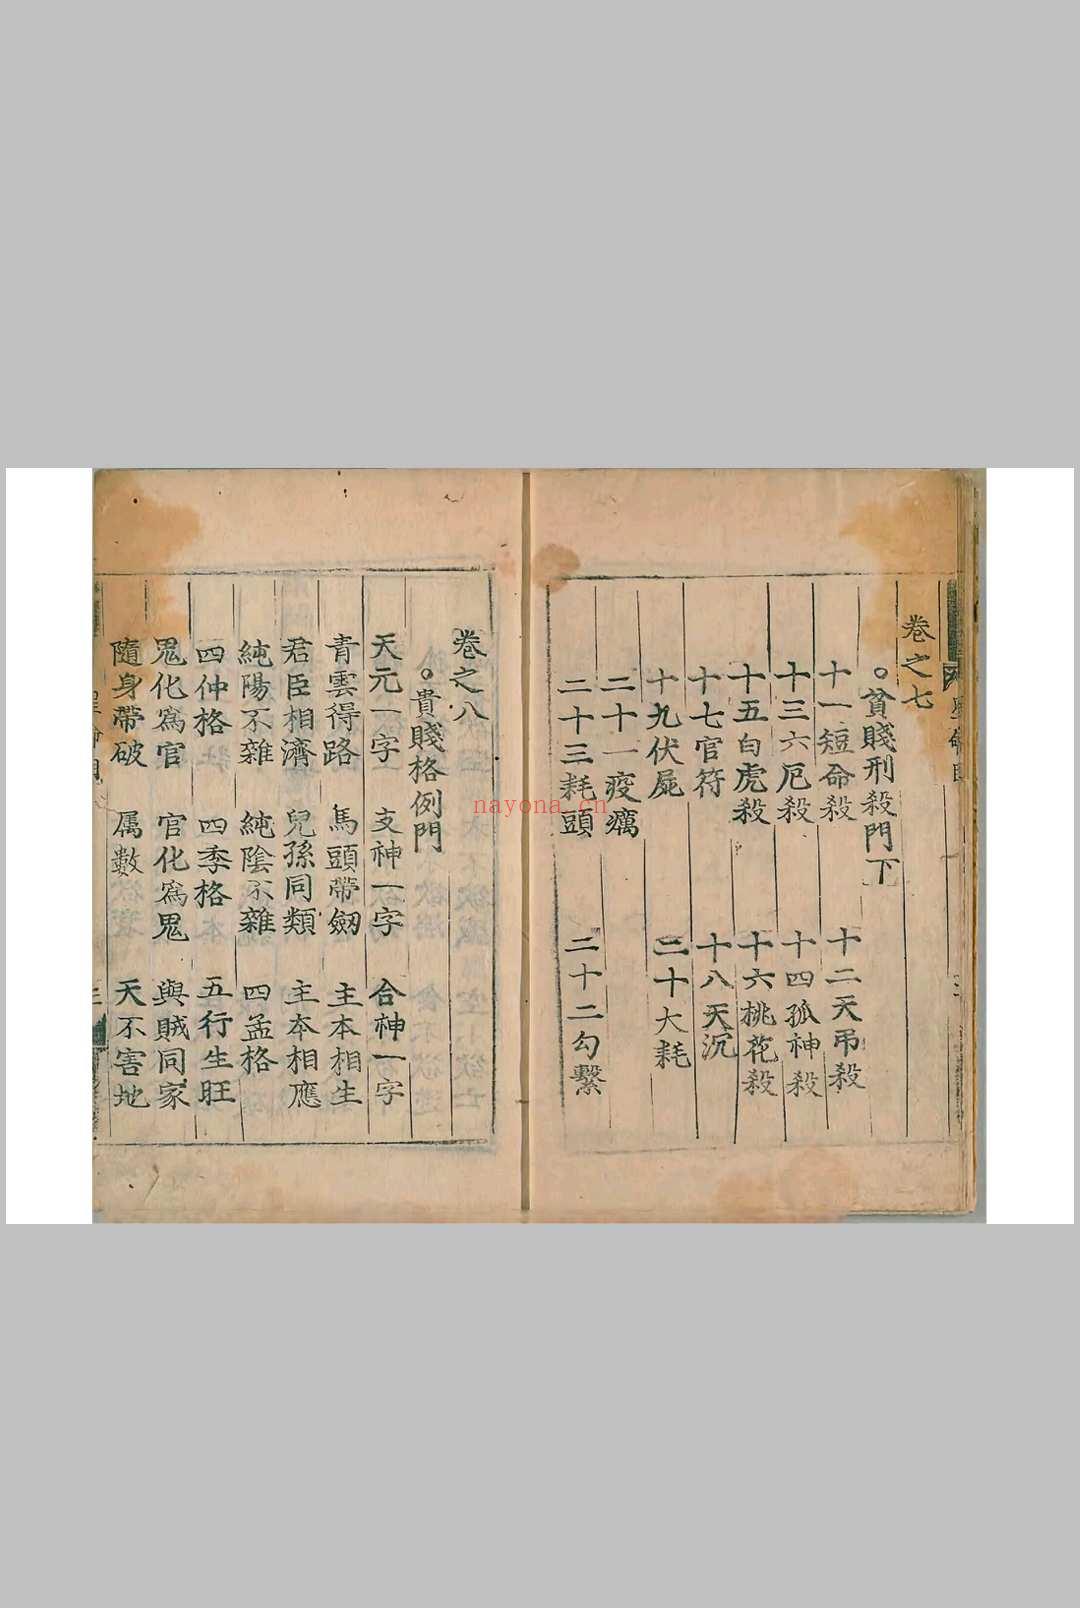 卷之七
○貧賤刑殺門下
十一短命殺 十二天吊殺
十三六厄殺 十四孤神殺
十五白虎殺 十六桃花殺
十七官符 十八天沉
十九伏屍 二十大耗
二十一疫癘 二十二勾繫
二十三耗頭
卷之八
○貴賤格例門
天元一字 支神一字 合神一字
青雲得路 馬頭帶劒 主本相生
君臣相濟 兒孫同類 主本相應
純陽不雜 純陰不雜 四孟格
四仲格 四季格 五行生旺
鬼化爲官 官化爲鬼 與賊同家
隨身帶破 属數 天不害地
nayona.cn